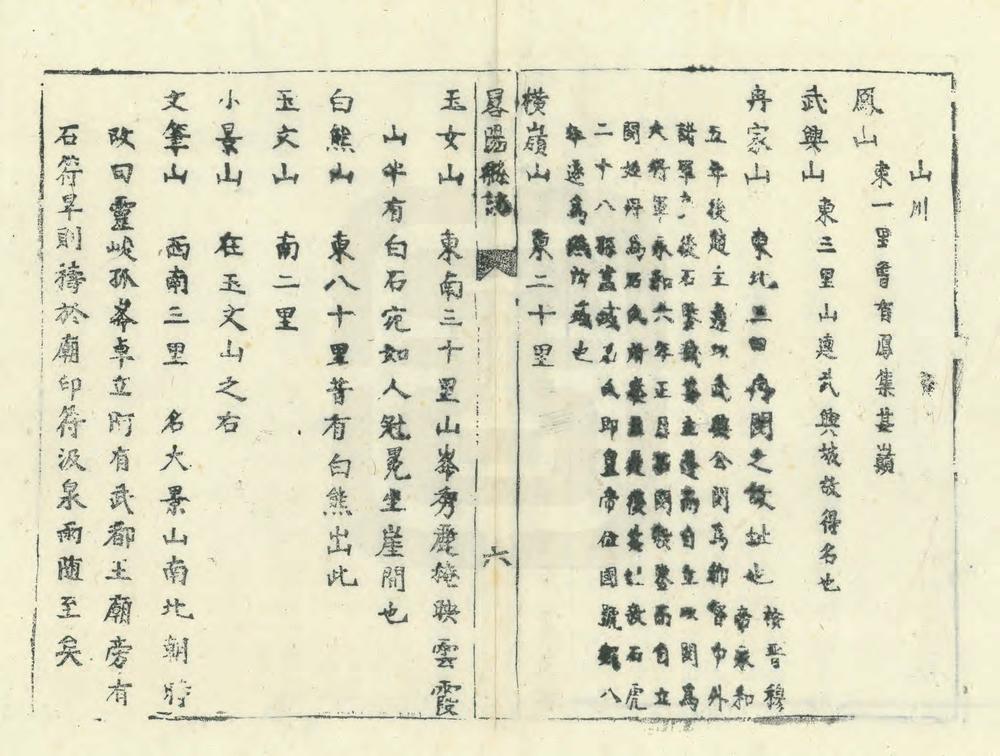 山川
鳳山　東一里曾有鳳集其巔
武興山　東三里山連武興城故得名也
冉家山　東北三里冉閔之故址也　按晉穆
帝永和
五年後趙主遵以武興公閔為都督中外
諸軍　後石鑒弒其主遵而自立以閔為
大將軍永和六年正月閔殺鑒而自立
閔　　為石氏　　　　後　　殺石虎
二十八孫盡滅石氏即皇帝位國號魏八
年遂為燕所滅也
橫嶺山　東二十里
畧陽縣誌　六
玉女山　東南三十里山峯秀麗掩映雲霞
山半有白石宛如人冠冕坐崖間也
白熊山　東八十里昔有白熊出此
玉文山　南二里
小景山　在玉文山之右
文筆山　西南三里　名大景山南北朝時
故曰靈峻孤峯卓立阿有武都王廟旁有
石符旱則禱於廟印符汲泉雨随至矣